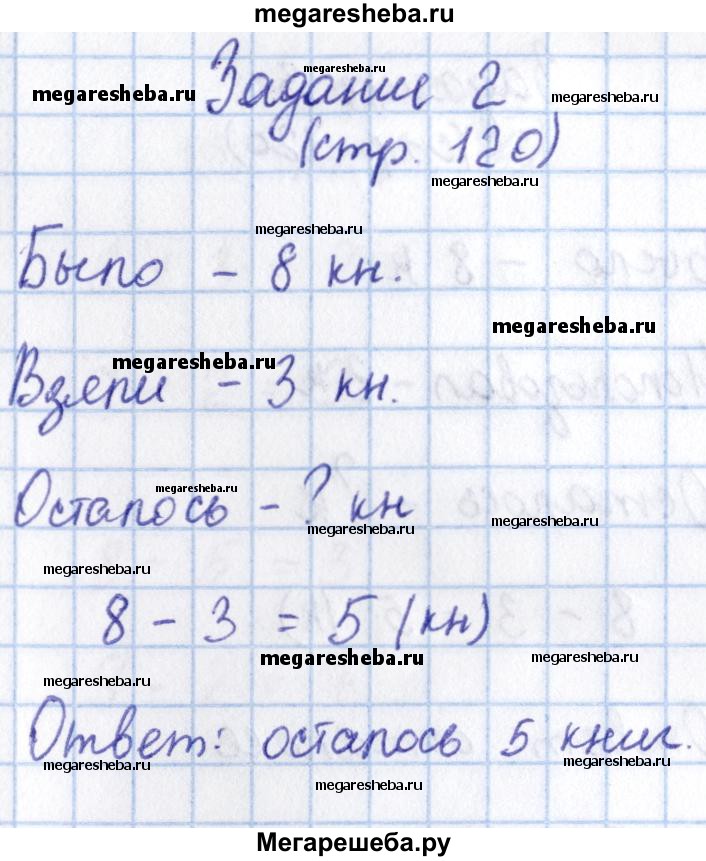 megaresheba.ru
megaresheba.ru
megaresheba.ru Задание 2 megaresheba.ru
(стр. 120)
megaresheba.ru
megaresheba.ru
Было - 8 кн.
megaresheba.ru
megaresheba.ru
Взяли - 3 кн.
megaresheba.ru
Осталось - ? кн
megaresheba.ru megaresheba.ru
megaresheba.ru
8 - 3 = 5 (кн)
megaresheba.ru megaresheba.ru
megaresheba.ru
Ответ: осталось 5 книг.
megaresheba.ru megaresheba.ru
megaresheba.ru
Мегарешеба.ру